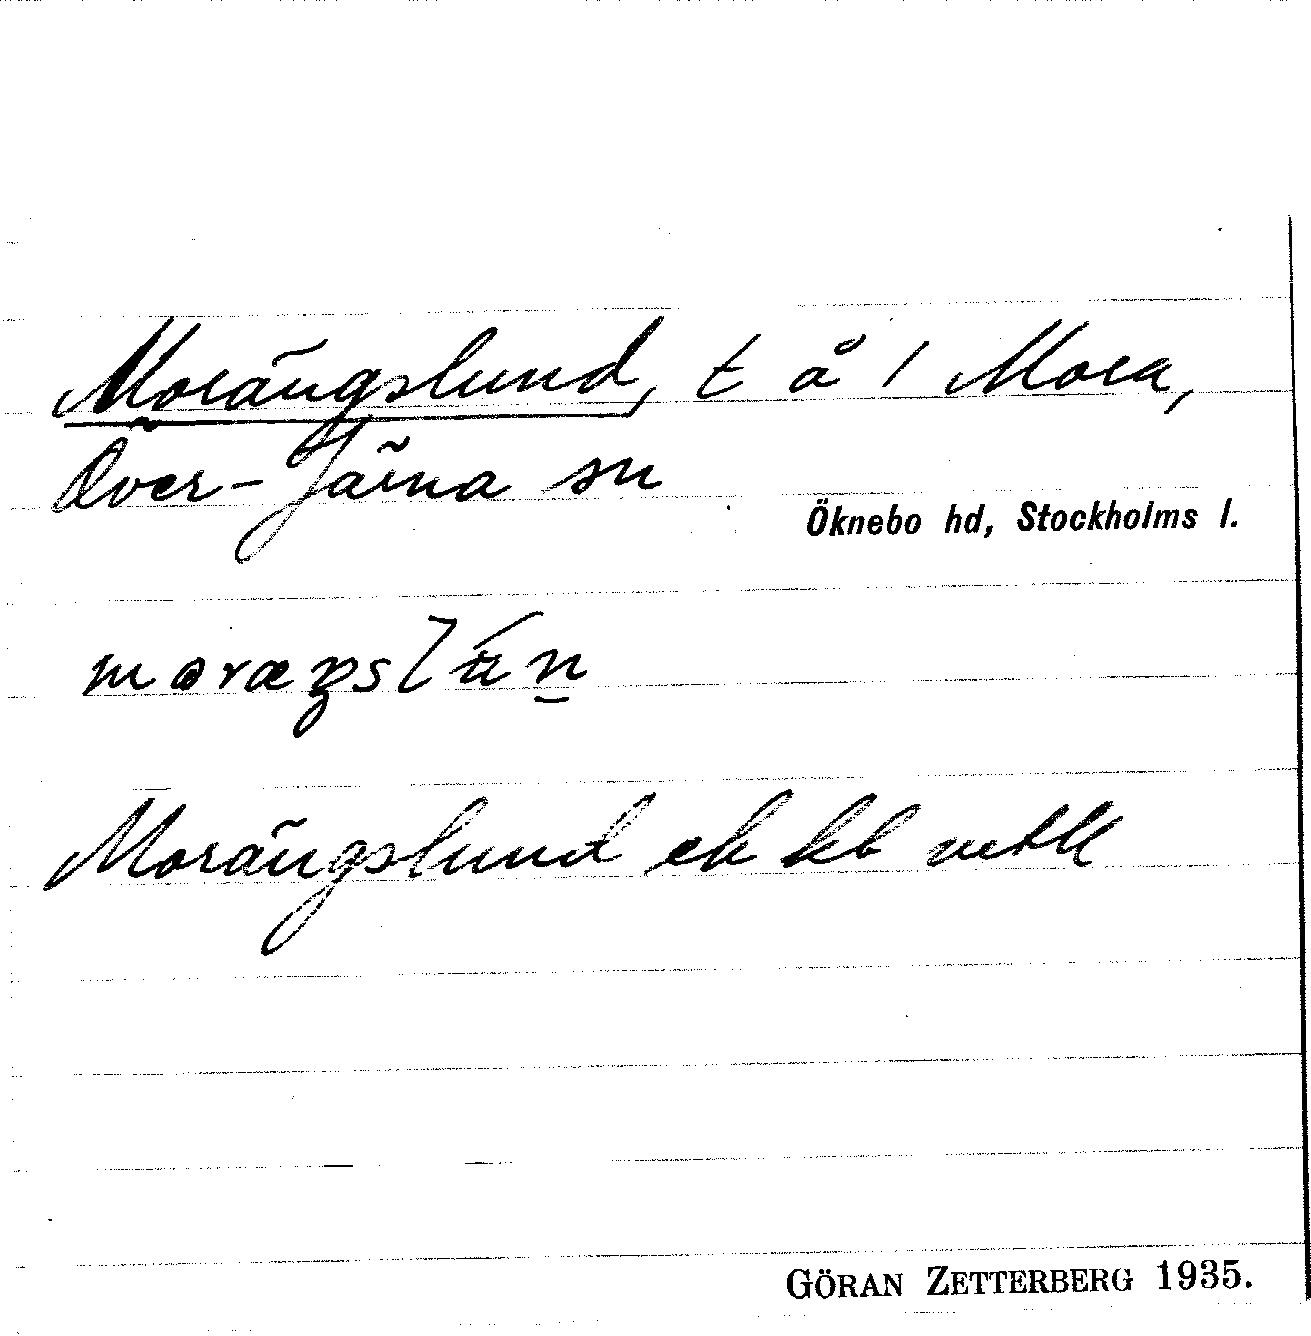 Morängslund, t å 1 Mora,
Över-Järna sn
Öknebo hd, Stockholms l.
Morängslund ek kb
GÖRAN ZETTERBERG 1935.